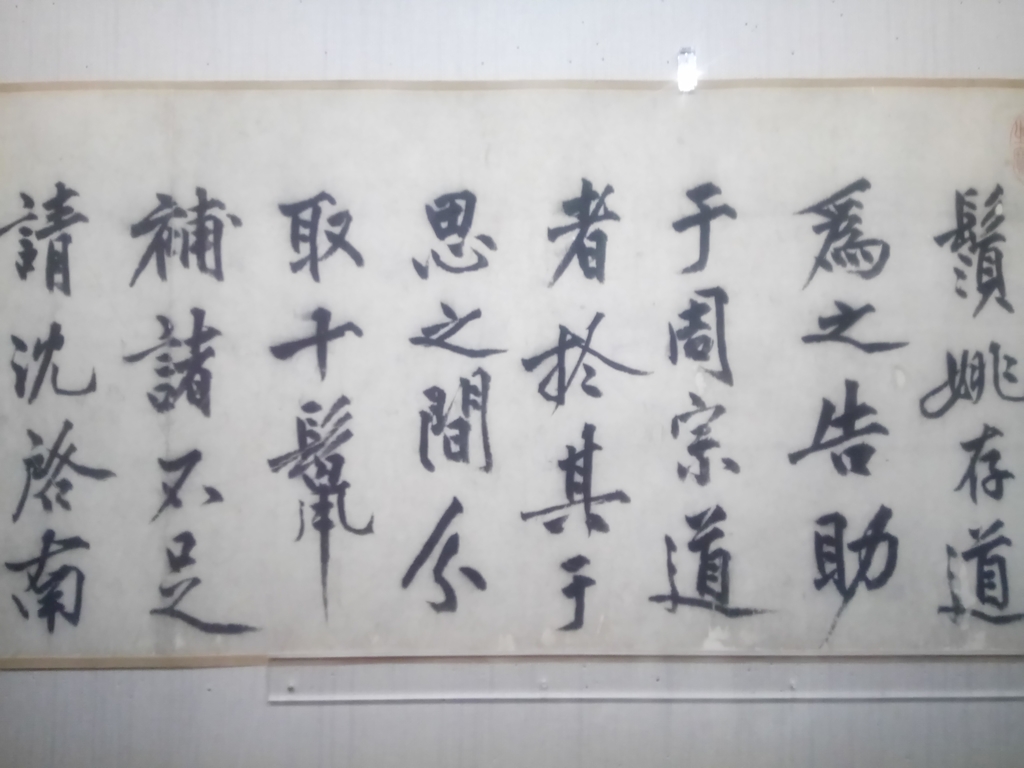 鬚姚存道
爲之告助
于周宗道
者於其于
思之間分
取十鬣
補諸不足
請沈啓南